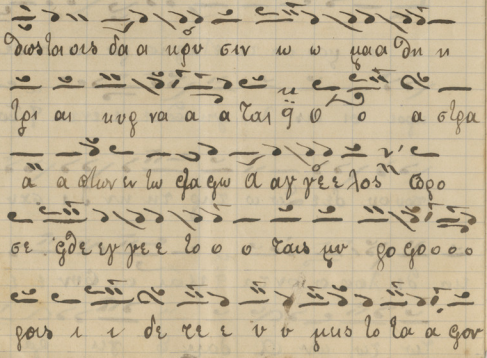 θως τοις δα α κρυ σιν ω ω μα α θη η
τρι αι κυρ να α α ται ο ο α στρα
α α πτων εν τω τα φω α αγ γε ε λος προ
σε φθε εγ γε ε το ο ο ταις μυ ρο φο ο ο ο
ροις ι ι δε τε ε υ υ μεις το τα α φον